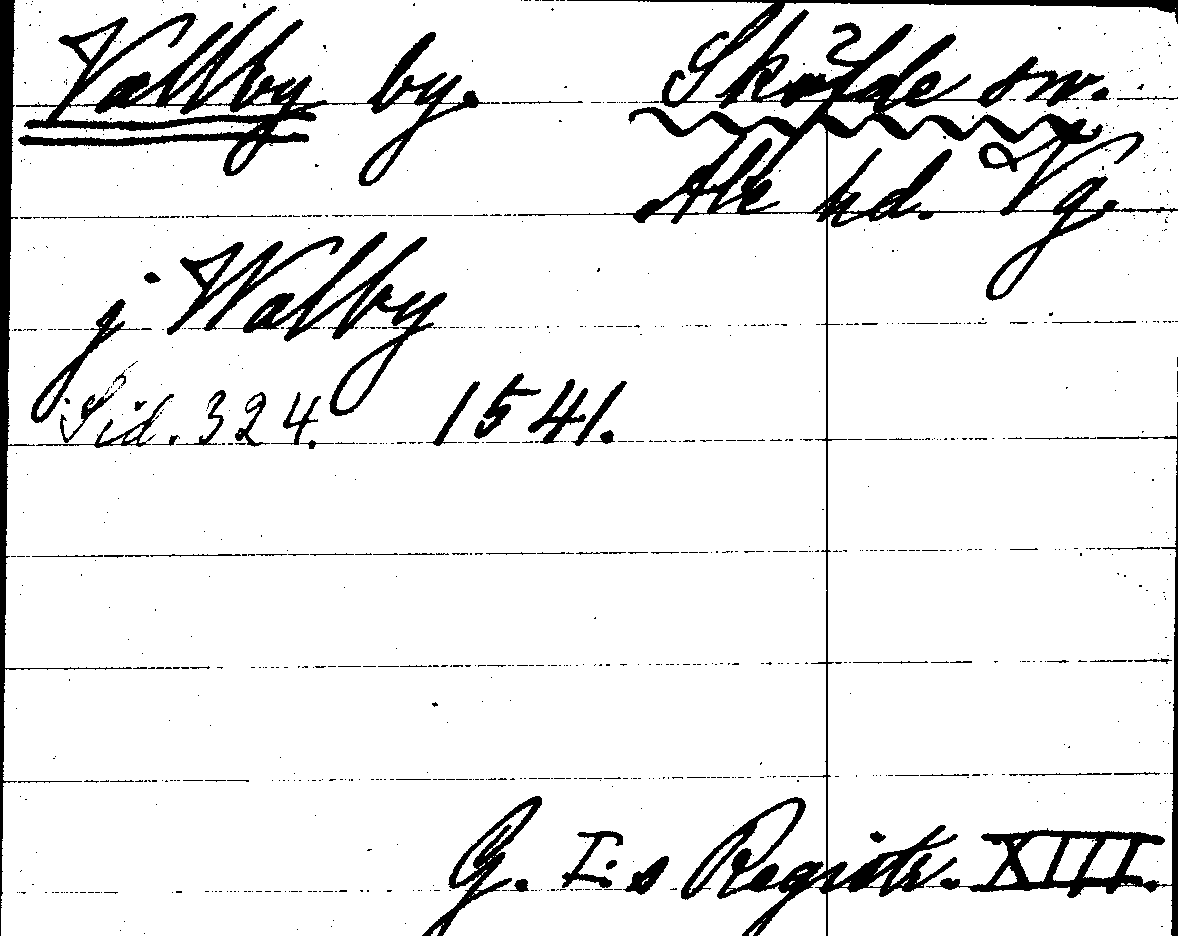 Vallby by. Sköfde sn.
Ale hd. Vg.
j Walby
Sid. 324. 1541.
G. I:s Registr. XIII.